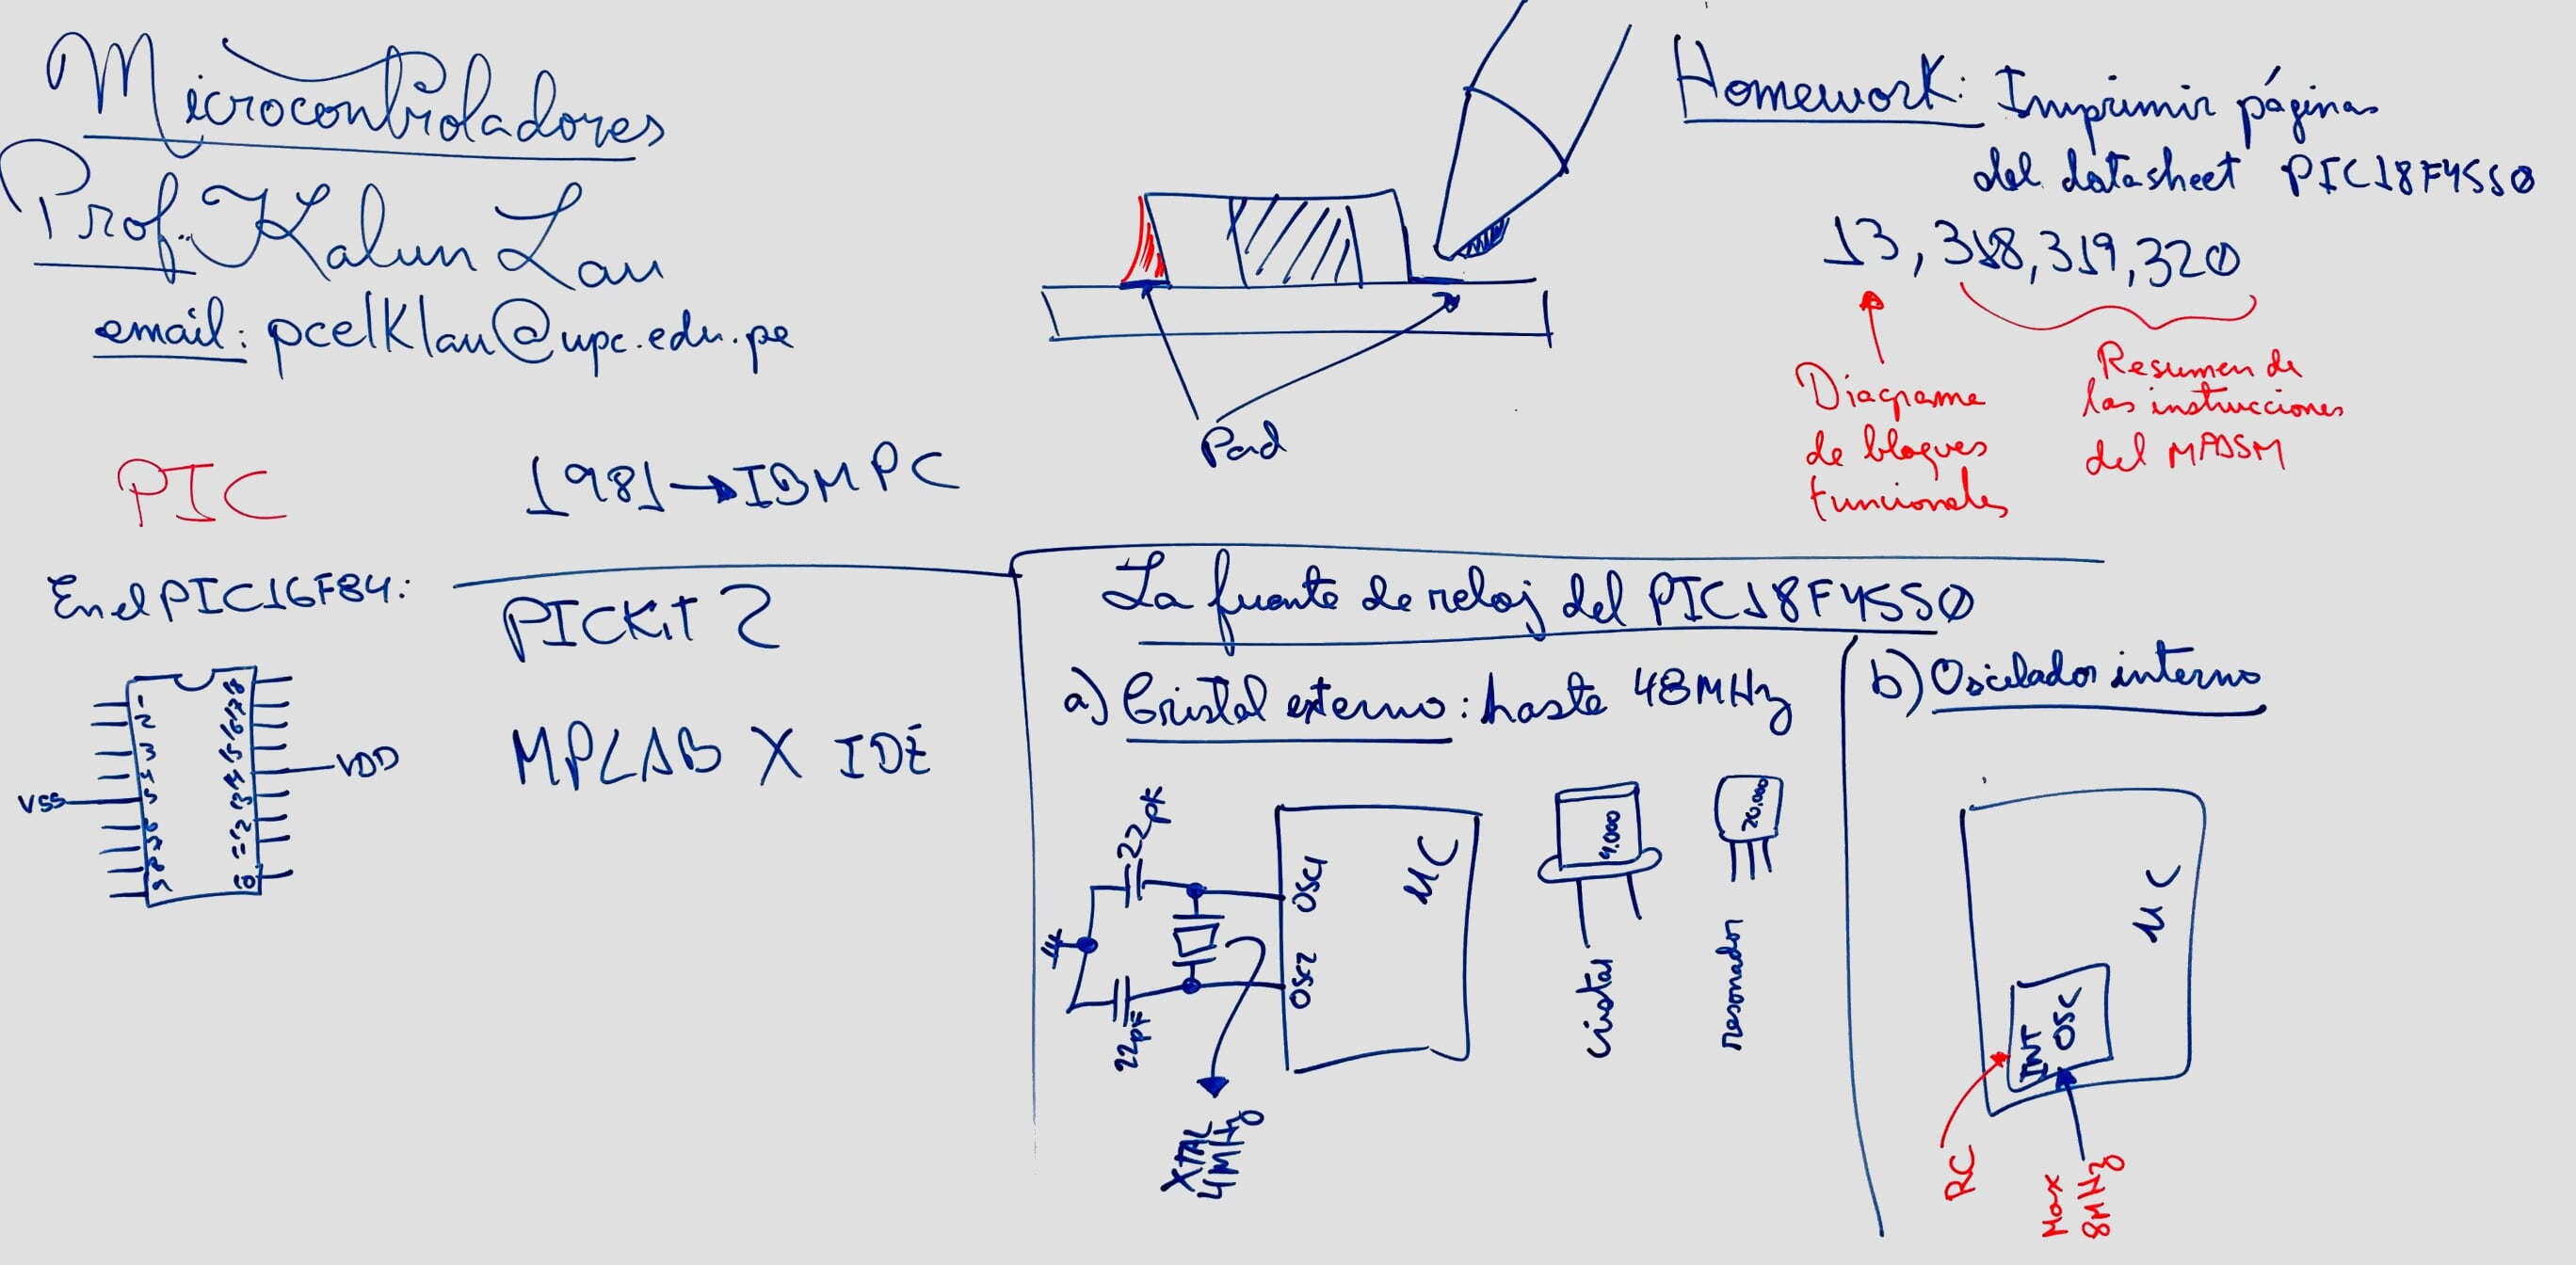 Microcontroladores
Prof. Kalun Lau
email: pcelklau@upc.edu.pe
Homework: Imprimir páginas
del datasheet PIC18F4550
13, 318, 319, 320
Diagrama
de bloques
funcionales
Resumen de
las instrucciones
del MPASM
Pad
PIC
1981 → IBM PC
En el PIC16F84:
1
2
3
4
5
6
7
8
9
18
17
16
15
14
13
12
11
10
VSS
VDD
PICKit 2
MPLAB X IDE
La fuente de reloj del PIC18F4550
a) Cristal externo: hasta 48MHz
22pF
22pF
OSC1
OSC2
µC
XTAL
4MHz
4.000
cristal
20.000
resonador
b) Oscilador interno
µC
INT
OSC
RC
Max
8MHz